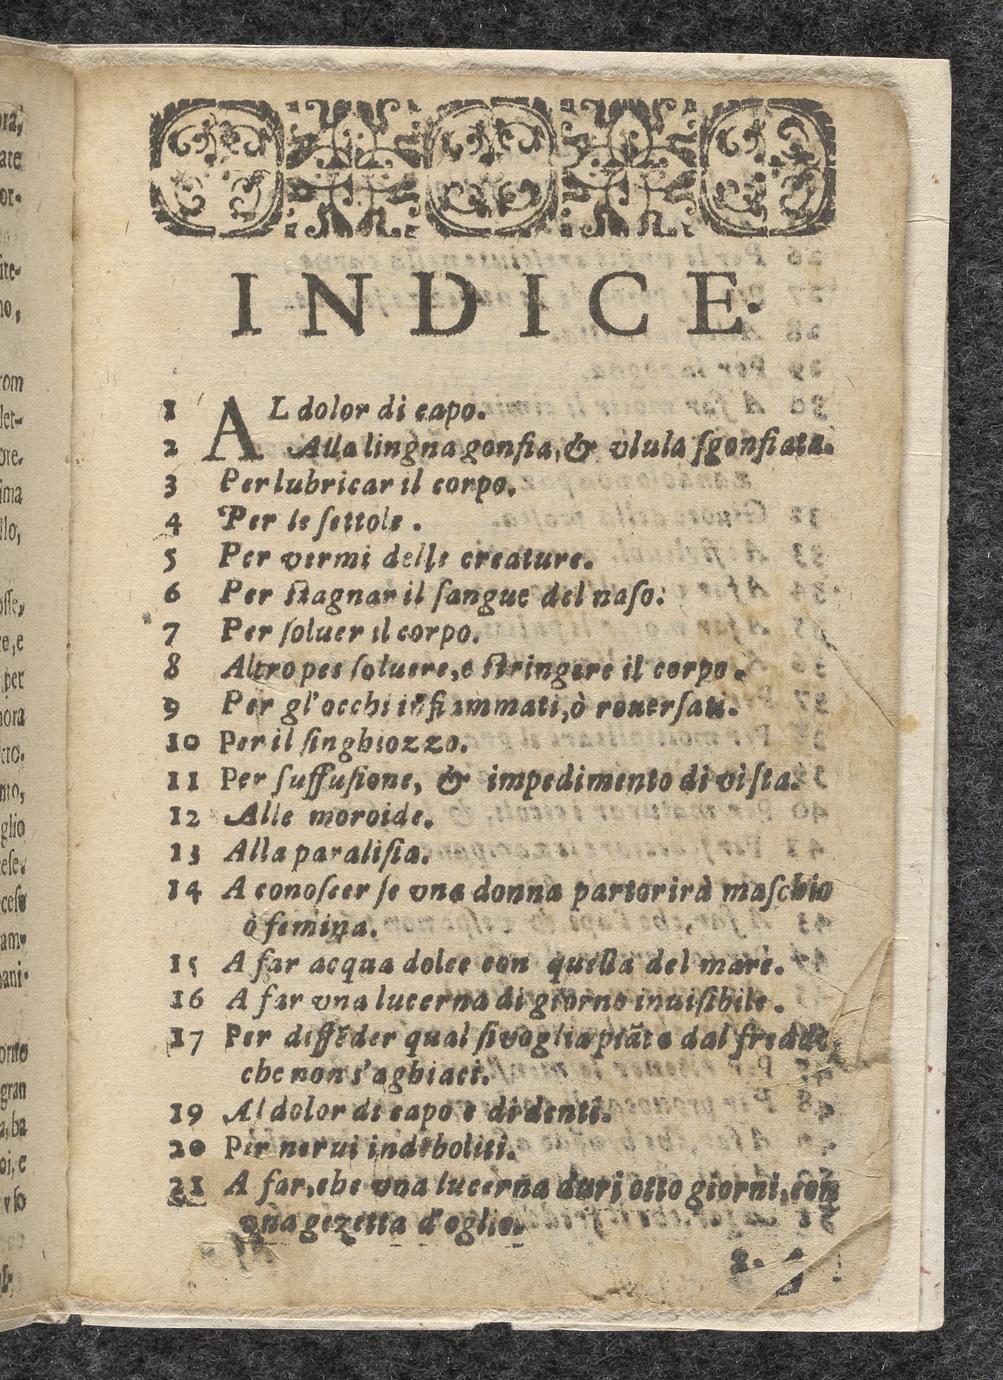 INDICE.
1 AL dolor di capo.
2 Alla lingna gonfia, & vlula ſgonfiata.
3 Per lubricar il corpo.
4 Per le ſettole.
5 Per vermi delle creature.
6 Per ſtagnar il ſangue del naſo.
7 Per ſoluer il corpo.
8 Altro per ſoluere, e ſtringere il corpo.
9 Per gl'occhi infiammati, ò rouerſati.
10 Per il ſinghiozzo.
11 Per ſuffuſione, & impedimento di viſta.
12 Alle moroide.
13 Alla paraliſia.
14 A conoſcer ſe vna donna partorirà maſchio
ò femina.
15 A far acqua dolce con quella del mare.
16 A far vna lucerna di giorno inuiſibile.
17 Per diffẽder qual ſivoglia piãta dal freddo,
che non s'aghiaci.
19 Al dolor di capo e di denti.
20 Per nerui indeboliti.
21 A far, che vna lucerna duri otto giorni, con
vna gezetta d'oglio.